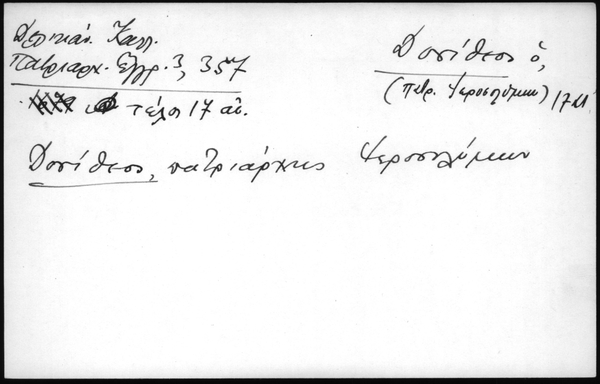 Δελικάν. Καλλ.
Πατριαρχ. Ἔγγρ. 3, 357
τέλος 17 αἰ.
Δοσίθεος ὁ,
(πατρ. Ἱεροσολύμων) 17 αἰ.
Δοσίθεος, πατριάρχης Ἱεροσολύμων